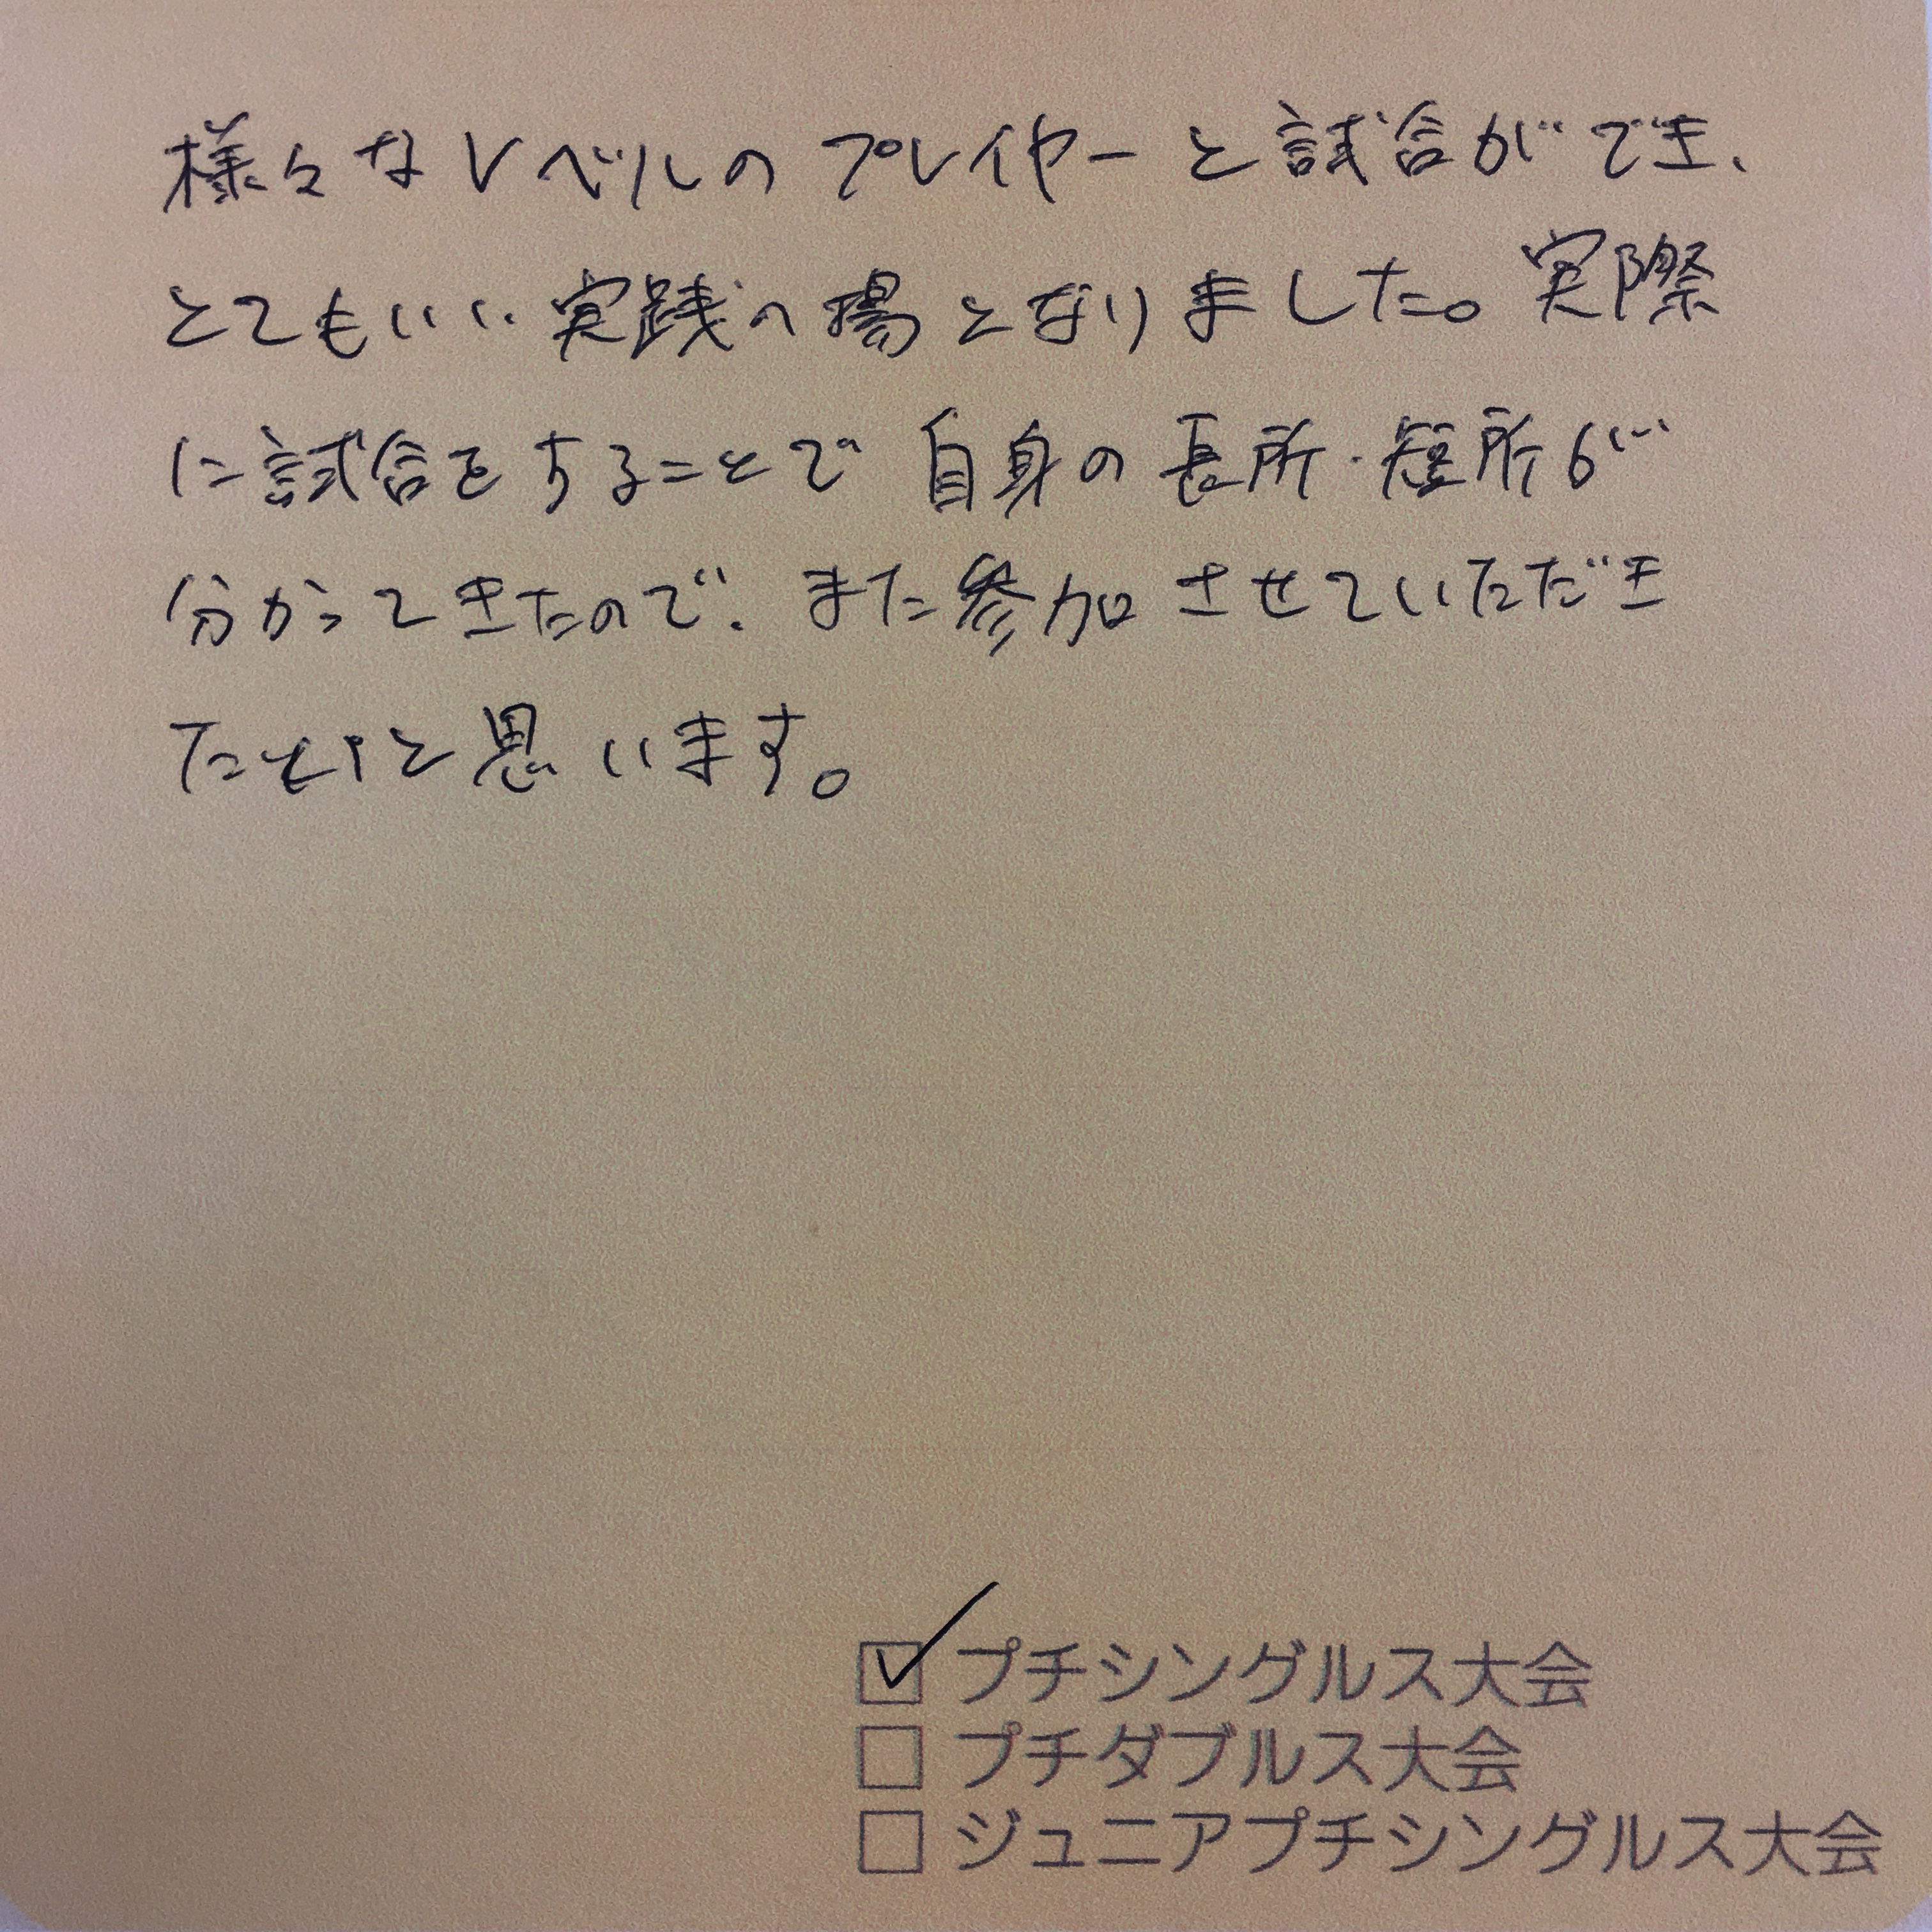 様々なレベルのプレイヤーと試合ができ、
とてもいい実践の場となりました。実際
に試合をすることで自身の長所・短所が
分かってきたので、また参加させていただき
たいと思います。
☑ プチシングルス大会
☐ プチダブルス大会
☐ ジュニアプチシングルス大会